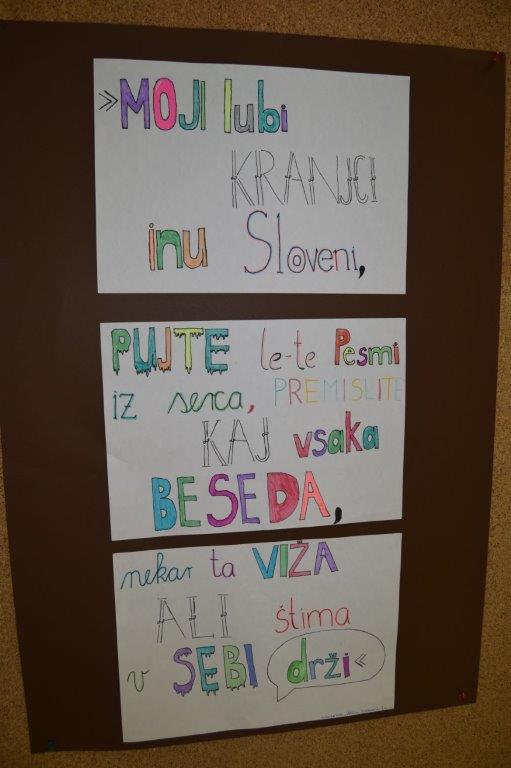 »MOJI lubi
KRANJCI
inu Sloveni,
PUJTE le-te Pesmi
iz serca, PREMISLITE
KAJ vsaka
BESEDA,
nekar ta VIŽA
ALI štima
v SEBI drži«